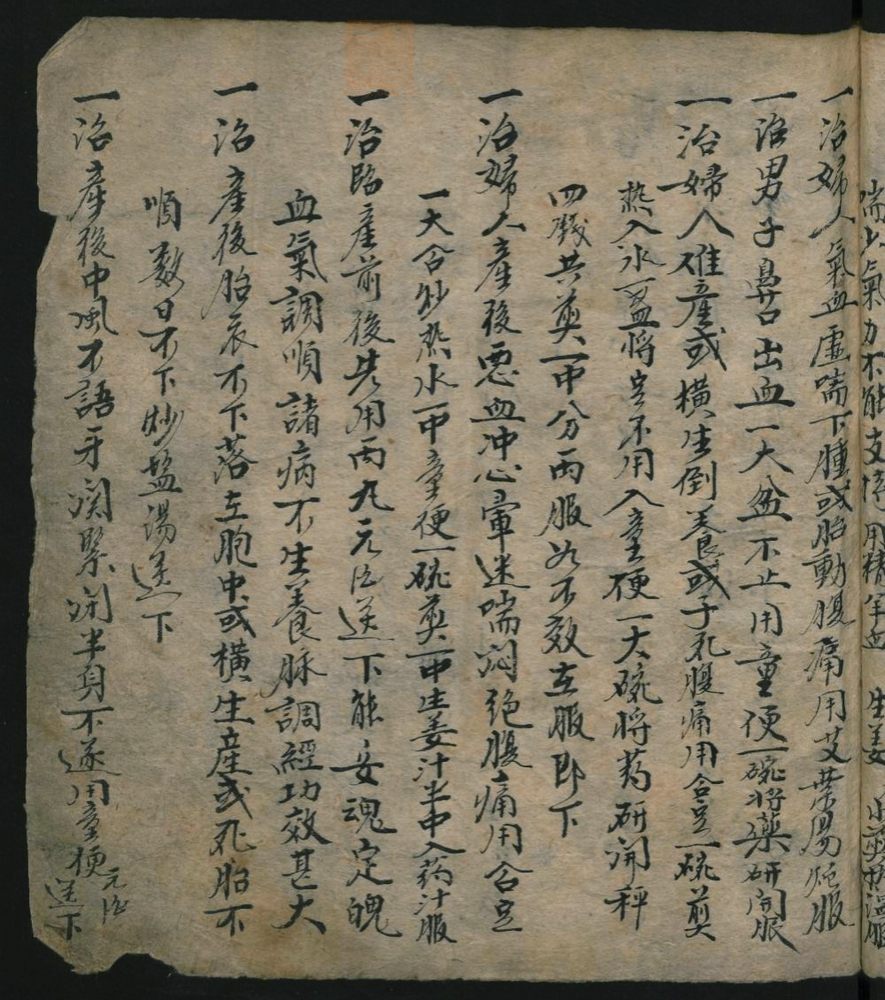 喘少氣力不能支持用精羊血 生姜 煎 溫服
一治婦人氣血虛喘下腫或胎動腹痛用艾葉湯 服
一治男子鼻出血一大盆不止用童便一碗將藥研開服
一治婦人难產或橫生倒養或子死腹痛用合豆一碗煎
熱入水一盅將豆不用入童便一大碗將药研開秤
四錢共煎一中分兩服如不效在服即下
一治婦人產後惡血冲心暈迷喘悶絕腹痛用合豆
一大合炒热水一中童便一碗煎一中生姜汁半中入药汁服
一治臨產前後先用丙九元酒送下能安魂定魄
血氣調順諸病不生養脉調經功效甚大
一治產後胎衣不下落在胞中或橫生產或死胎不
順数日不下炒盐湯送下
一治產後中風不語牙関緊閉半身不遂用童便元酒送下